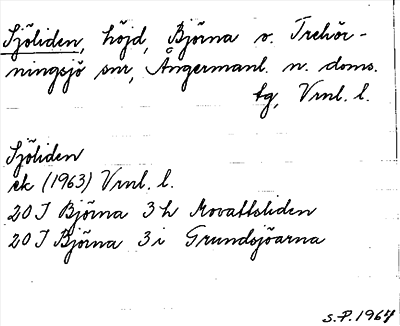 Sjöliden, höjd, Björna o. Trehör-
ningsjö snr, Ångermanl. n. doms.
tg, Vrnl. l.
Sjöliden
ek (1963) Vrnl. l.
20 I Björna 3 h Movattsliden
20 I Björna 3 i Grundsjöarna
S.P. 1967